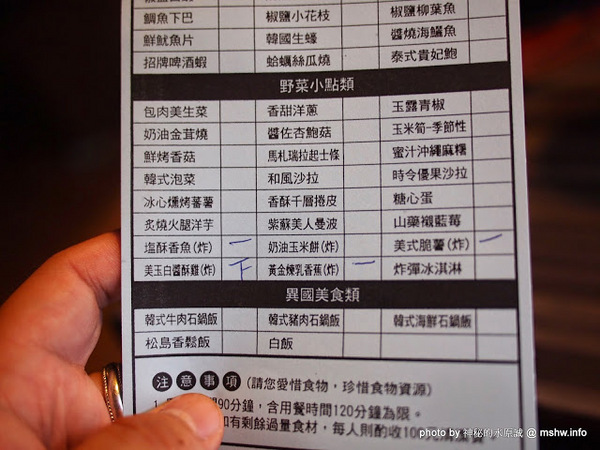 鯛魚下巴 椒鹽小花枝 椒鹽柳葉魚
鮮魷魚片 韓國生蠔 醬燒海鱺魚
招牌啤酒蝦 蛤蠣絲瓜燒 泰式貴妃鮑
野菜小點類
包肉美生菜 香甜洋蔥 玉露青椒
奶油金茸燒 醬佐杏鮑菇 玉米筍-季節性
鮮烤香菇 馬札瑞拉起士條 蜜汁沖繩麻糬
韓式泡菜 和風沙拉 時令優果沙拉
冰心燻烤蕃薯 香酥千層捲皮 糖心蛋
炙燒火腿洋芋 紫蘇美人曼波 山藥襯藍莓
塩酥香魚(炸) 一 奶油玉米餅(炸) 美式脆薯(炸) 一
美玉白醬酥雞(炸) 下 黃金煉乳香蕉(炸) 一 炸彈冰淇淋
異國美食類
韓式牛肉石鍋飯 韓式豬肉石鍋飯 韓式海鮮石鍋飯
松島香鬆飯 白飯
注意事項 (請您愛惜食物，珍惜食物資源)
90分鐘，含用餐時間120分鐘為限。
有剩餘過量食材，每人則酌收100
photo by 神秘的水原誠 @ mshw.info